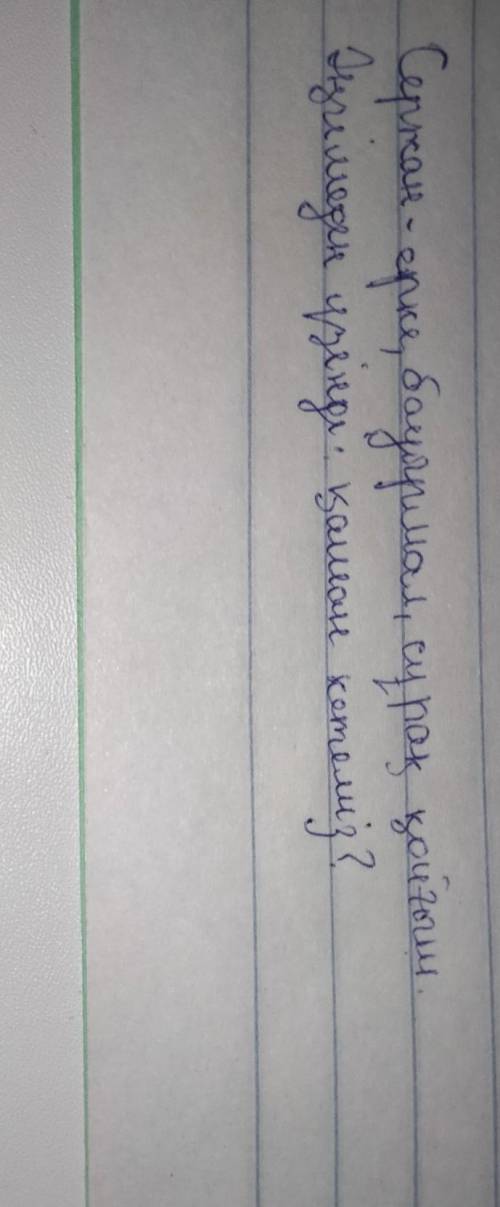 Сержан - ерке, бауырмал, сұрақ қойғыш.
Әңгімеден үзінді: қашан кетеміз?